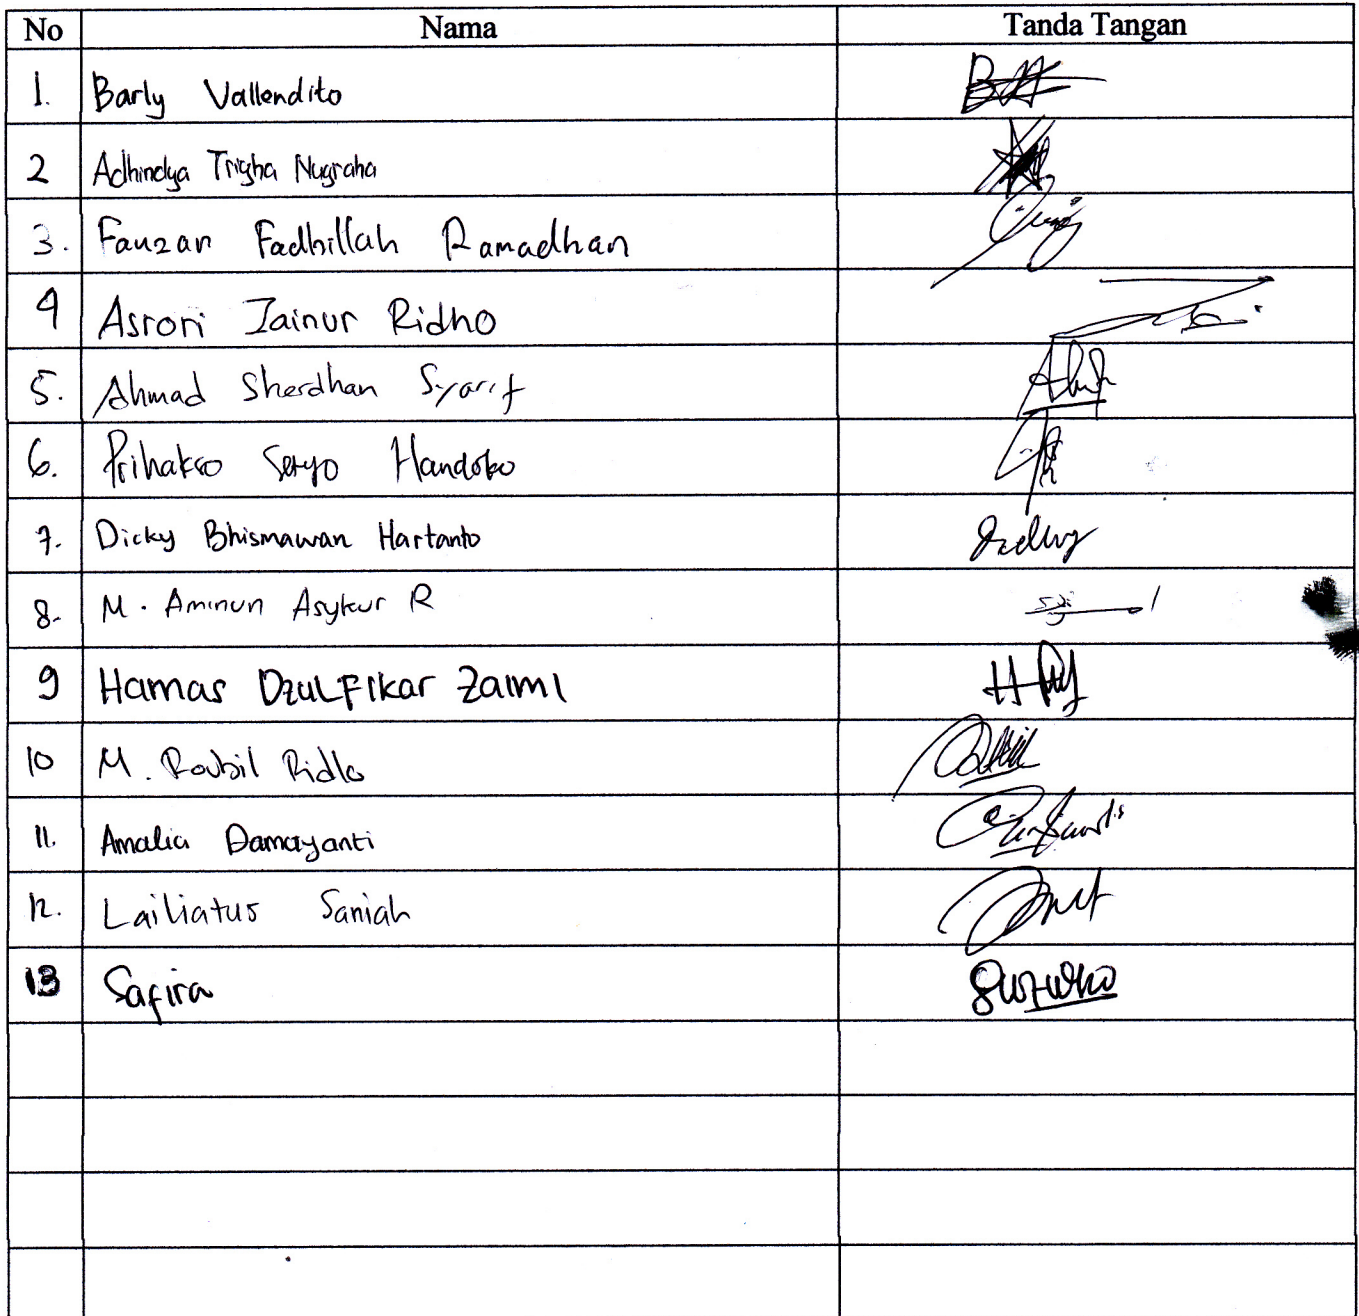 No Nama Tanda Tangan
1. Barly Vallendito
2 Adhindya Trigha Nugraha
3. Fauzan Fadhillah Ramadhan
4 Asrori Zainur Ridho
5. Ahmad Sherdhan Syarif
6. Prihakso Seryo Handoko
7. Dicky Bhismawan Hartanto
8. M. Aminun Asykur R
9 Hamas Dzulfikar Zaimi
10 M. Roubil Ridlo
11. Amalia Damayanti
12. Lailiatus Saniah
13 Safira